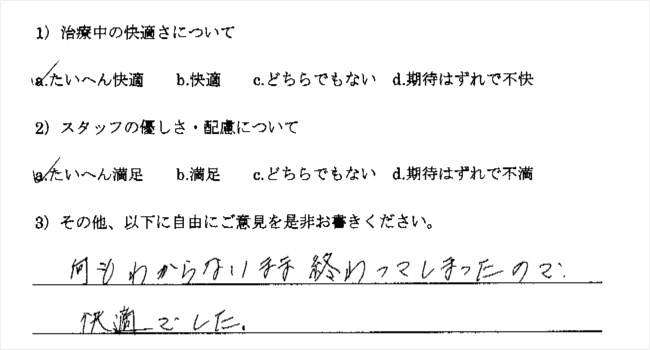 1）治療中の快適さについて
a.たいへん快適 b.快適 c.どちらでもない d.期待はずれで不快
2）スタッフの優しさ・配慮について
a.たいへん満足 b.満足 c.どちらでもない d.期待はずれで不満
3）その他、以下に自由にご意見を是非お書きください。
何もわからないまま終わってしまったので、
快適でした。